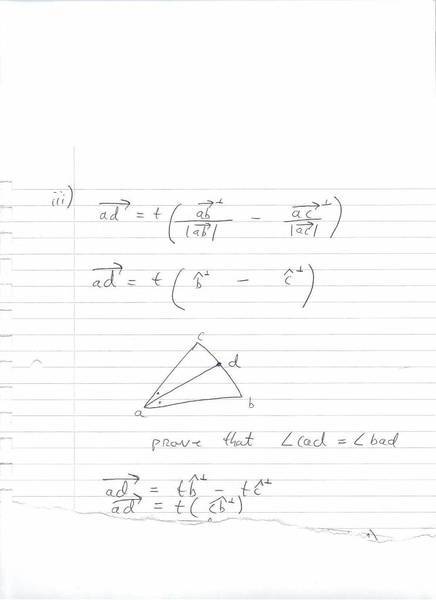 iii) $\overrightarrow{ad} = t\left(\frac{\overrightarrow{ab}^{\perp}}{|\overrightarrow{ab}|} - \frac{\overrightarrow{ac}^{\perp}}{|\overrightarrow{ac}|}\right)$
$\overrightarrow{ad} = t\left(\hat{b}^{\perp} - \hat{c}^{\perp}\right)$
c
d
a
b
prove that ∠cad = ∠bad
$\overrightarrow{ad} = t\hat{b}^{\perp} - t\hat{c}^{\perp}$
$\overrightarrow{ad} = t(\hat{cb}^{\perp})$